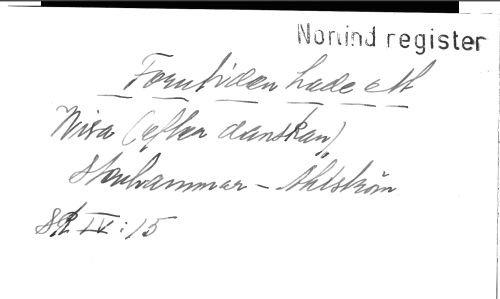 Nomind register
Forntiden hade ett
Visa (efter danskan),
Stenhammar - Ahlström
SR IV: 15